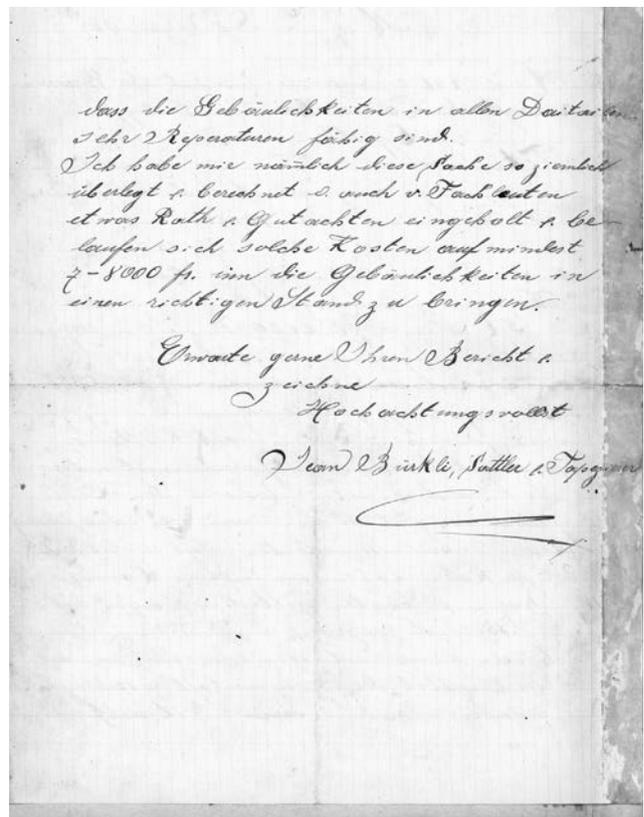 dass die Gebäulichkeiten in allen
sehr Reperaturen fähig sind.
Ich habe mir nämlich diese Sache so ziemlich
überlegt & berechnet & auch v. Fachleuten
etwas Rath & Gutachten eingeholt & be-
laufen sich solche Kosten auf mindest
7-8000 fr. um die Gebäulichkeiten in
einen richtigen Stand zu bringen.
Erwarte gerne Ihren Bericht &
zeichne
Hochachtungsvollst
Jean Bürkli, Sattler &